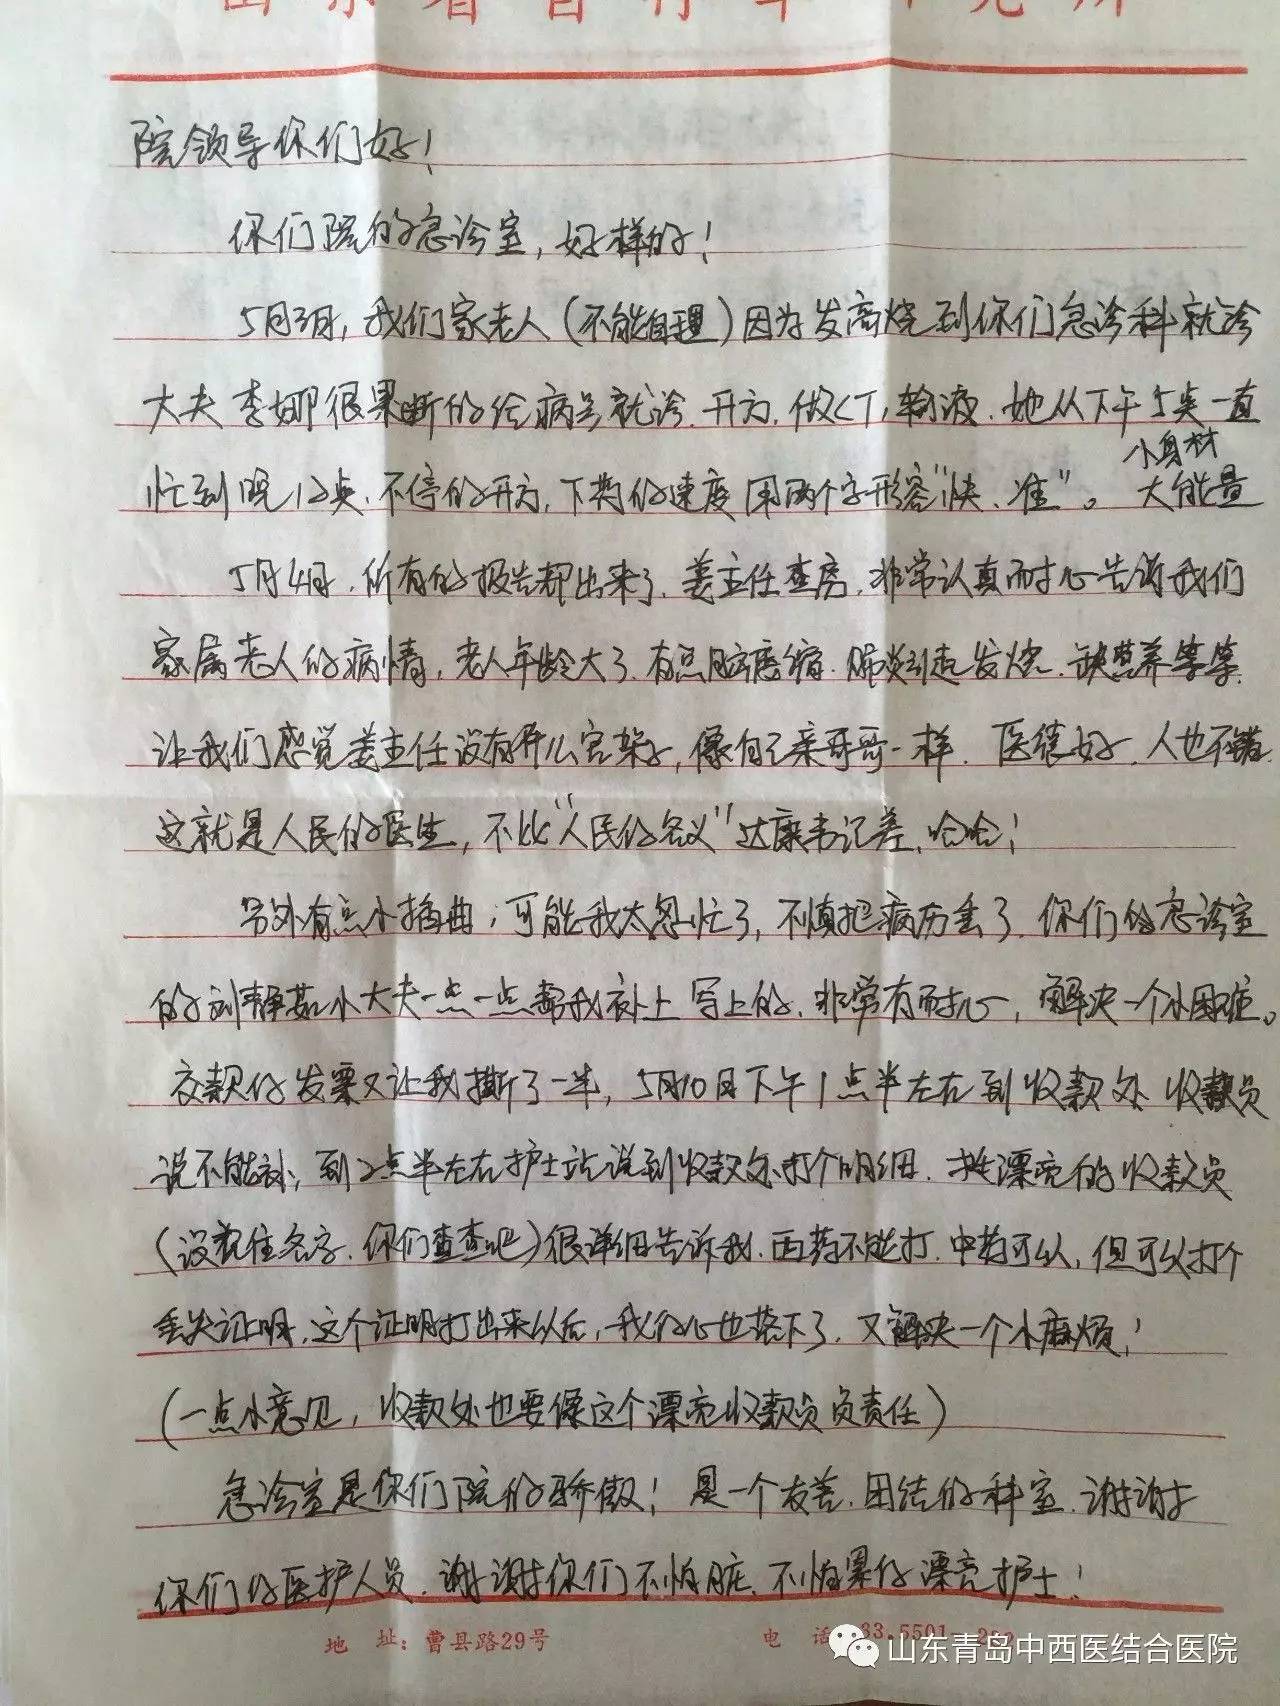 院领导你们好!
你们院的急诊室,好样的!
5月3日,我们家老人(不能自理)因为发高烧到你们急诊科就诊
大夫李娜很果断的给病号就诊.开方.做CT,输液.她从下午5点一直
忙到晚12点.不停的开方,下药的速度用两个字形容"快、准"。小身材大能量
5月4日.所有的报告都出来了.姜主任查房,非常认真耐心告诉我们
家属老人的病情,老人年龄大了.有点脑萎缩.肺炎引起发烧.缺营养等等.
让我们感觉姜主任没有什么官架子,像自己亲哥哥一样.医德好.人也不错.
这就是人民的医生,不比"人民的名义"达康书记差,哈哈!
另外有点小插曲,可能我太急忙了,不慎把病历丢了.你们的急诊室
的刘静茹小大夫一点一点帮我补上写上的.非常有耐心,解决一个小困难。
交款的发票又让我撕了一半,5月10日下午1点半左右到收款处收款员
说不能补,到2点半左右护士站说到收款处打个明细.找漂亮的收款员
(没记住名字.你们查查吧)很详细告诉我.西药不能打.中药可以,但可以打个
丢失证明.这个证明打出来以后,我们心也落下了.又解决一个小麻烦!
(一点小意见,收款处也要像这个漂亮收款员负责任)
急诊室是你们院的骄傲!是一个友善.团结的科室.谢谢
你们的医护人员.谢谢你们不怕脏.不怕累的漂亮护士!
地 址:曹县路29号 电 话
山东青岛中西医结合医院